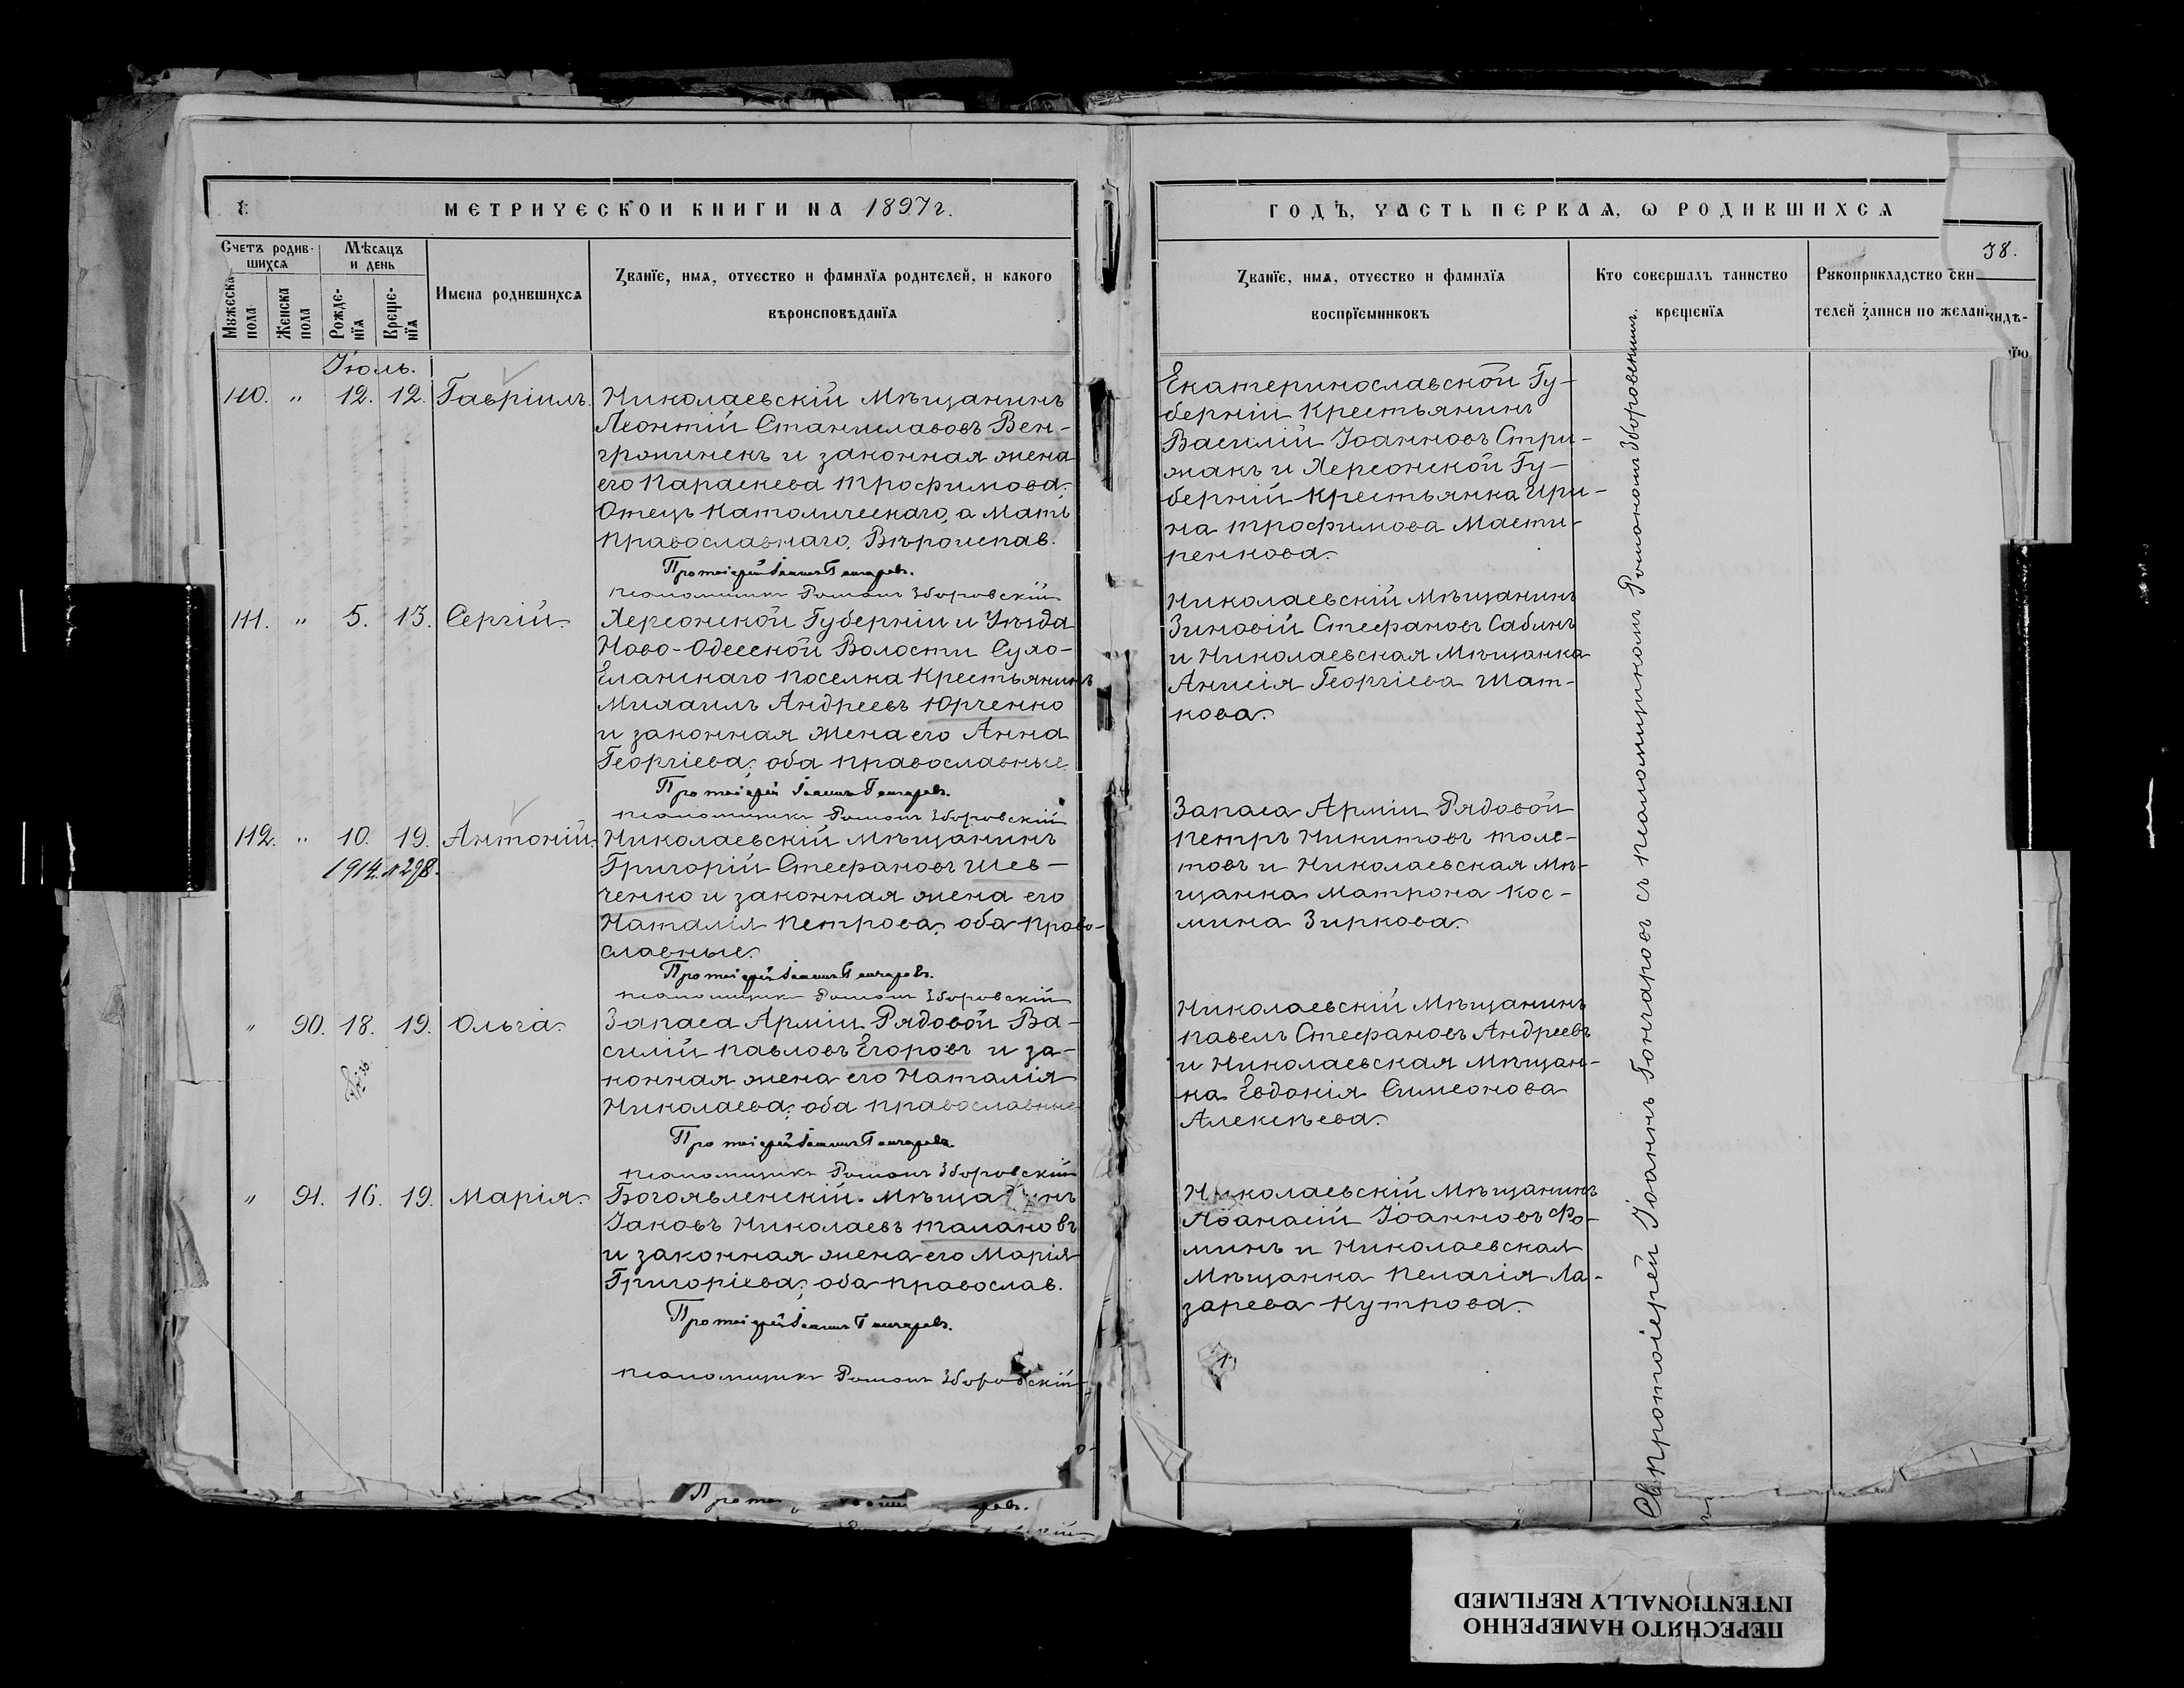 МЕТРИЧЕСКОЙ КНИГИ НА 1897 г.
Счетъ родив-
шихся
Мѣсяцъ
и день
Мужеска
пола
Женска
пола
Рожде-
нїя
Креще-
нїя
Имена родившихся
Званїе, имя, отчество и фамилїя родителей, и какого
вѣроисповѣданїя
Іюль.
110. " 12. 12. Гавріилъ.
Николаевскій Мѣщанинъ
Леонтій Станиславовъ Вен-
грошнекъ и законная жена
его Параскева Трофимова.
Отецъ Католическаго, а Мать
Православнаго, Вѣроиспов.
Протоіерей Іоаннъ Гончаровъ.
Псаломщикъ Романъ Зборовскій
111. " 5. 13. Сергій.
Херсонской Губерніи и Уѣзда
Ново-Одесской Волости Сухо-
Еланскаго поселка Крестьянинъ
Михаилъ Андреевъ Юрченко
и законная жена его Анна
Георгіева, оба православные.
Протоіерей Іоаннъ Гончаровъ.
Псаломщикъ Романъ Зборовскій
112. " 10. 19. Антоній.
1914. № 298.
Николаевскій Мѣщанинъ
Григорій Стефановъ Шев-
ченко и законная жена его
Наталія Петрова, оба право-
славные.
Протоіерей Іоаннъ Гончаровъ.
Псаломщикъ Романъ Зборовскій
" 90. 18. 19. Ольга.
Запаса Арміи Рядовой Ва-
силій Павловъ Егоровъ и за-
конная жена его Наталія
Николаева, оба православные
Протоіерей Іоаннъ Гончаровъ
Псаломщикъ Романъ Зборовскій
" 91. 16. 19. Марія.
Богоявленскій Мѣщанинъ
Іаковъ Николаевъ Талановъ
и законная жена его Марія
Григоріева, оба православ.
Протоіерей Іоаннъ Гончаровъ.
Псаломщикъ Романъ Зборовскій
ГОДЪ, ЧАСТЬ ПЕРВАЯ, Ѡ РОДИВШИХСЯ
38.
Званїе, имя, отчество и фамилїя
воспрїемниковъ
Кто совершалъ таинство
крещенїя
Рукоприкладство сви
телей записи по желан
идѣ-
їю
Екатеринославской Гу-
берніи Крестьянинъ
Василій Іоанновъ Стри-
жакъ и Херсонской Гу-
берній Крестьянка Ири-
на Трофимова Масти-
ренкова.
Николаевскій Мѣщанинъ
Зиновій Стефановъ Сабинъ
и Николаевская Мѣщанка
Анисія Георгіева Шат-
кова.
Запаса Арміи Рядовой
Петръ Никитовъ Толс-
товъ и Николаевская Мѣ-
щанка Матрона Кос-
мина Зиркова.
Николаевскій Мѣщанинъ
Павелъ Стефановъ Андреевъ
и Николаевская Мѣщан-
ка Евдокія Симеонова
Алексѣева.
Николаевскій Мѣщанинъ
Аѳанасій Іоанновъ Фо-
минъ и Николаевская
Мѣщанка Пелагія Ла-
зарева Кутрова.
Протоіерей Іоаннъ Гончаровъ съ псаломщикомъ Романомъ Зборовскимъ.
ПЕРЕСНЯТО НАМЕРЕННО
INTENTIONALLY REFILMED